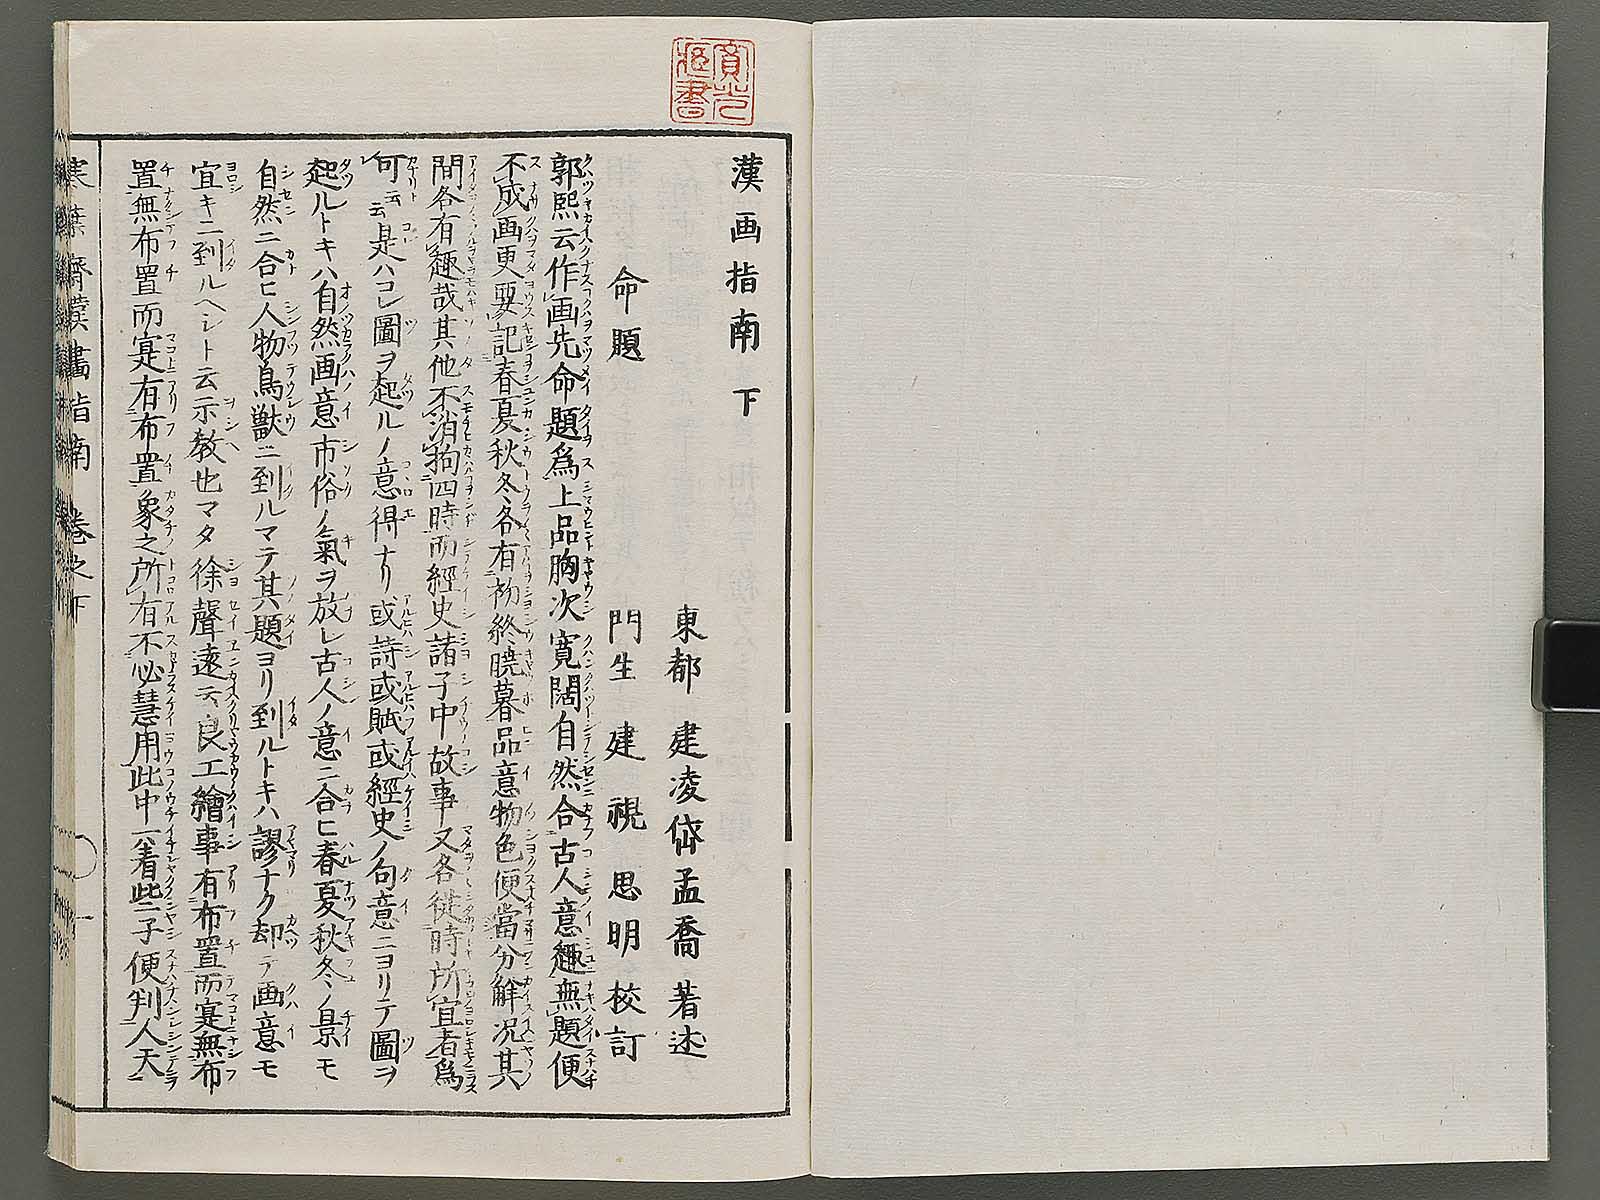 漢画指南 下
東都 建凌岱孟喬著述
命題
門生 建視思明校訂
郭熙云作画先命題爲上品胸次寛闊自然合古人意趣無題便
不成画更要記春夏秋冬各有初終曉暮品意物色便當分解况其
間各有趣哉其他不消拘四時而經史諸子中故事又各從時所宜者爲
可云云是ハコレ圖ヲ起ルノ意得ナリ或詩或賦或經史ノ句意ニヨリテ圖ヲ
起ルトキハ自然画意市俗ノ氣ヲ放レ古人ノ意ニ合ヒ春夏秋冬ノ景モ
自然ニ合ヒ人物鳥獣ニ到ルマテ其題ヨリ到ルトキハ謬ナク却テ画意モ
宜キニ到ルヘシト云示教也マタ徐聲遠云良工繪事有布置而寔無布
置無布置而寔有布置象之所有不必慧用此中一着此二子便判人天
寒葉齋漢畫指南 卷之下 一
寶光
書